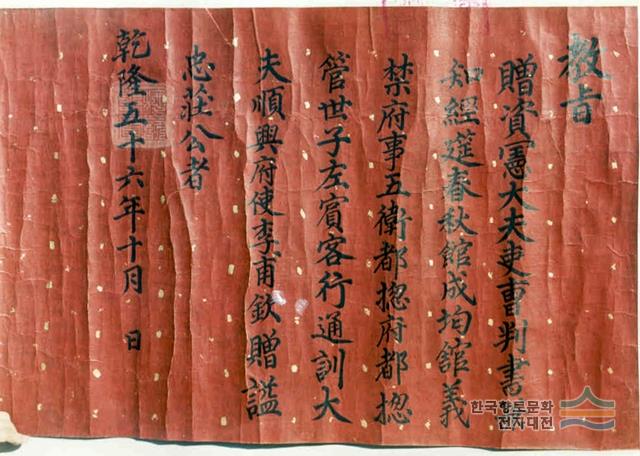 教旨
贈資憲大夫吏曹判書兼
知經筵春秋館成均館義
禁府事五衛都摠府都摠
管世子左賓客行通訓大
夫順興府使李甫欽贈諡
忠莊公者
乾隆五十六年十月　日
한국향토문화
전자대전